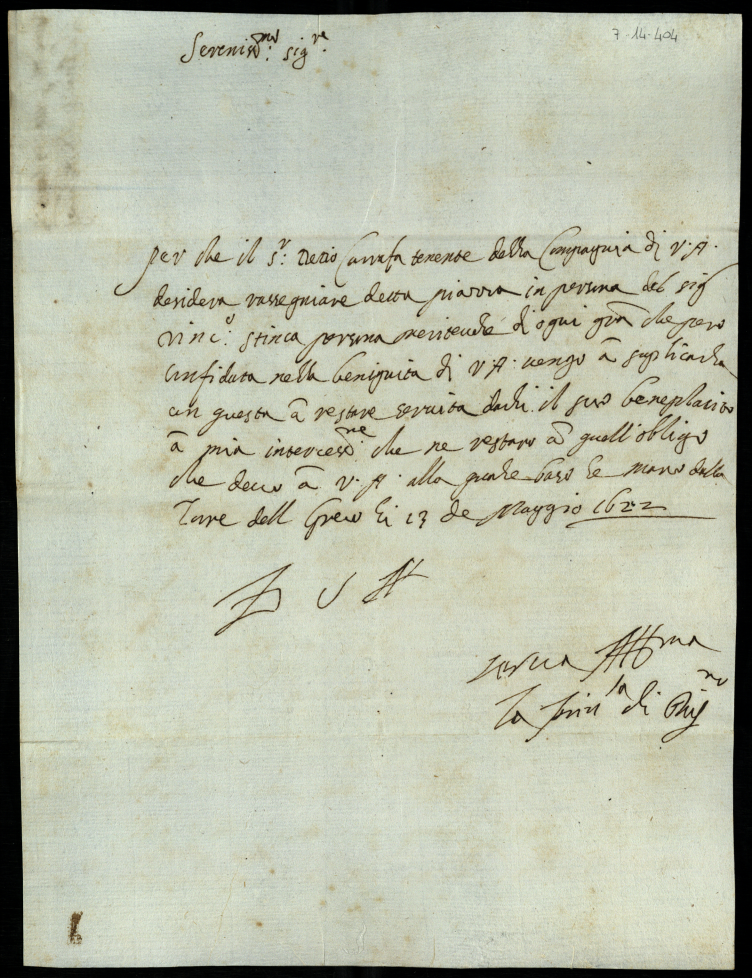 7-14-404
Sereniss.mo Sig.re
per che il S.r Detio Carrafa tenente della Compagnia di V. A.
desidera rassegniare detta piazza in persona del sig
vinc.o stinca persona meriteuole di ogni gra che pero
confidata nella benignita di V A. uengo à suplicarla
con questa à restare seruita darli il suo beneplacito
à mia intercess.ne che ne restaro cō quell obligo
che deuo à V. A. alla quale baso le mano dalla
Torre dell Greco li 13 de Maggio 1622
D V A
serua Aff.ma
La prin.sa di